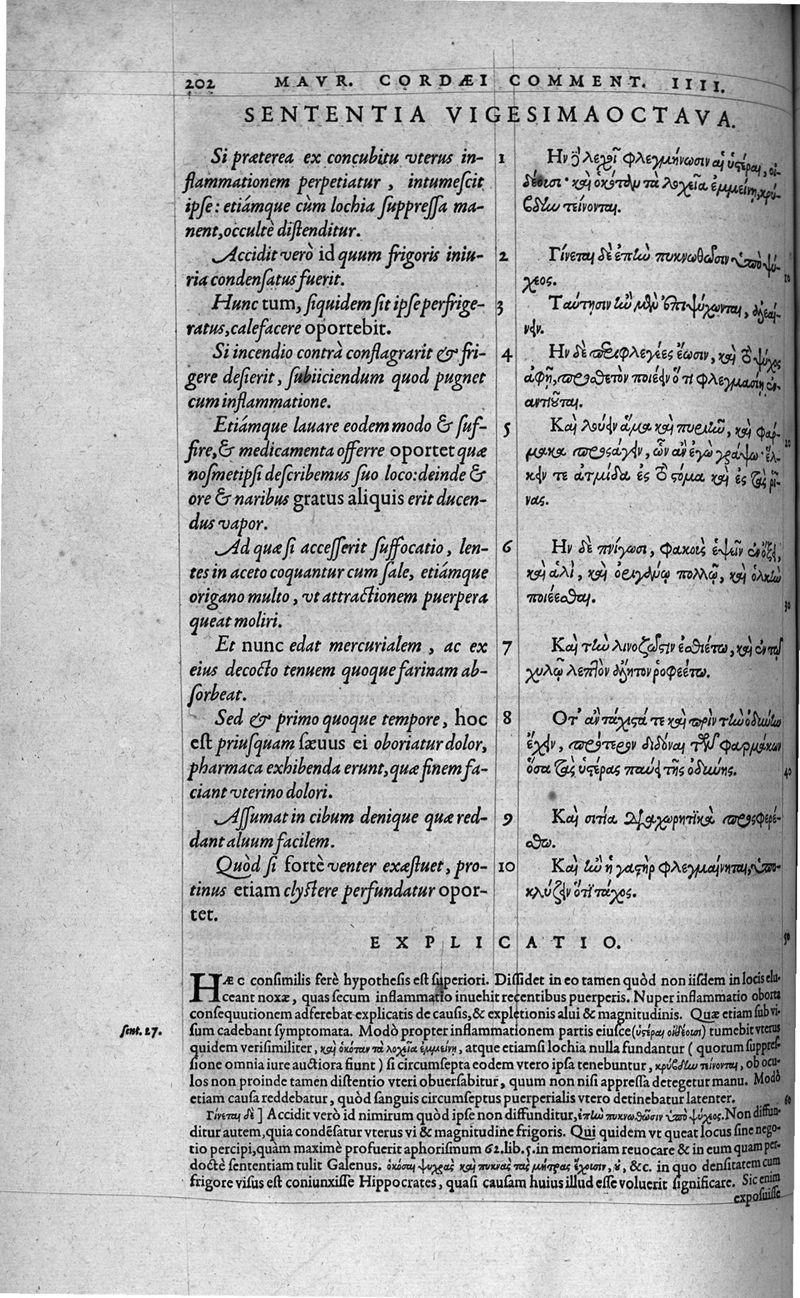 202 MAVR. CORDÆI COMMENT. IIII.
SENTENTIA VIGESIMAOCTAVA.
Si præterea ex concubitu vterus in-
flammationem perpetiatur, intumescit
ipse: etiámque cùm lochia suppressa ma-
nent, occultè distenditur.
Accidit verò id quum frigoris iniu-
ria condensatus fuerit.
Hunc tum, siquidem sit ipse perfrige-
ratus, calefacere oportebit.
Si incendio contrà conflagrarit & fri-
gere desierit, subiiciendum quod pugnet
cum inflammatione.
Etiámque lauare eodem modo & suf-
fire, & medicamenta offerre oportet quæ
nosmetipsi describemus suo loco: deinde &
ore & naribus gratus aliquis erit ducen-
dus vapor.
Ad quæ si accesserit suffocatio, len-
tes in aceto coquantur cum sale, etiámque
origano multo, vt attractionem puerpera
queat moliri.
Et nunc edat mercurialem, ac ex
eius decocto tenuem quoque farinam ab-
sorbeat.
Sed & primo quoque tempore, hoc
est priusquam sæuus ei oboriatur dolor,
pharmaca exhibenda erunt, quæ finem fa-
ciant vterino dolori.
Assumat in cibum denique quæ red-
dant aluum facilem.
Quòd si fortè venter exæstuet, pro-
tinus etiam clystere perfundatur opor-
tet.
1 Ην δὲ λεχοῖ φλεγμήνωσιν αἱ ὑστέραι, οἰ-
δέουσι· καὶ ὁκόταν τὰ λοχεῖα ἐμμείνῃ, κρύ-
βδην τείνονται.
2 Γίνεται δὲ ἐπὴν πυκνωθῶσιν ὑπὸ ψύ-
χεος.
3 Ταύτῃσιν ἢν μὲν ἐπιψύχωνται, ἀλεαί-
νειν.
4 Ην δὲ περιφλεγέες ἔωσιν, καὶ τὸ ψύχος
ἀφῇ, προσθετὸν ποιέειν ὅ τι φλεγμασίῃ ἐν-
αντιοῦται.
5 Καὶ λούειν ἅμα καὶ πυριῆν, καὶ φάρ-
μακα προσάγειν, ὧν ἂν ἐγὼ γράψω· ἕλ-
κειν τε ἀτμίδα ἐς τὸ στόμα καὶ ἐς τὰς ῥῖ-
νας.
6 Ην δὲ πνίγωσι, φακοὺς ἑψεῖν ἐν ὄξει,
καὶ ἁλὶ, καὶ ὀριγάνῳ πολλῷ, καὶ ὁλκὴν
ποιέεσθαι.
7 Καὶ τὴν λινοζῶσιν ἐσθιέτω, καὶ ἐν τῷ
χυλῷ λεπτὸν ἄλητον ῥοφεέτω.
8 Οτ' ἂν τάχιστά τε καὶ πρὶν τὴν ὀδύνην
ἔχειν, πρότερον διδόναι τῶν φαρμάκων
ὅσα τὰς ὑστέρας παύει τῆς ὀδύνης.
9 Καὶ σιτία διαχωρητικὰ προσφερέ-
σθω.
10 Καὶ ἢν ἡ γαστὴρ φλεγμαίνηται, ὑπο-
κλύζειν ὅτι τάχος.
10
20
30
40
50
EXPLICATIO.
HÆC consimilis ferè hypothesis est superiori. Dissidet in eo tamen quòd non iisdem in locis elu-
ceant noxæ, quas secum inflammatio inuehit recentibus puerperis. Nuper inflammatio oborta
consequutionem adferebat explicatis de causis, & expletionis alui & magnitudinis. Quæ etiam sub vi-
sent. 27.
sum cadebant symptomata. Modò propter inflammationem partis eiusce (ὑστέραι οἰδέουσι) tumebit vterus
quidem verisimiliter, καὶ ὁκόταν τὰ λοχεῖα ἐμμείνῃ, atque etiamsi lochia nulla fundantur (quorum suppres-
sione omnia iure auctiora fiunt) si circumsepta eodem vtero ipsa tenebuntur, κρύβδην τείνονται, ob ocu-
los non proinde tamen distentio vteri obuersabitur, quum non nisi appressa detegetur manu. Modò
etiam causa reddebatur, quòd sanguis circumseptus puerperialis vtero detinebatur latenter.
60
Γίνεται δὲ] Accidit verò id nimirum quòd ipse non diffunditur, ἐπὴν πυκνωθῶσιν ὑπὸ ψύχεος. Non diffun-
ditur autem, quia condēsatur vterus vi & magnitudine frigoris. Qui quidem vt queat locus sine nego-
tio percipi, quàm maximè profuerit aphorismum 62. lib. 5. in memoriam reuocare & in eum quam per-
doctè sententiam tulit Galenus. ὁκόσαι ψυχρὰς καὶ πυκνὰς τὰς μήτρας ἔχουσιν, ȣ̓, &c. in quo densitatem cum
frigore visus est coniunxisse Hippocrates, quasi causam huius illud esse voluerit significare. Sic enim
exposuisse